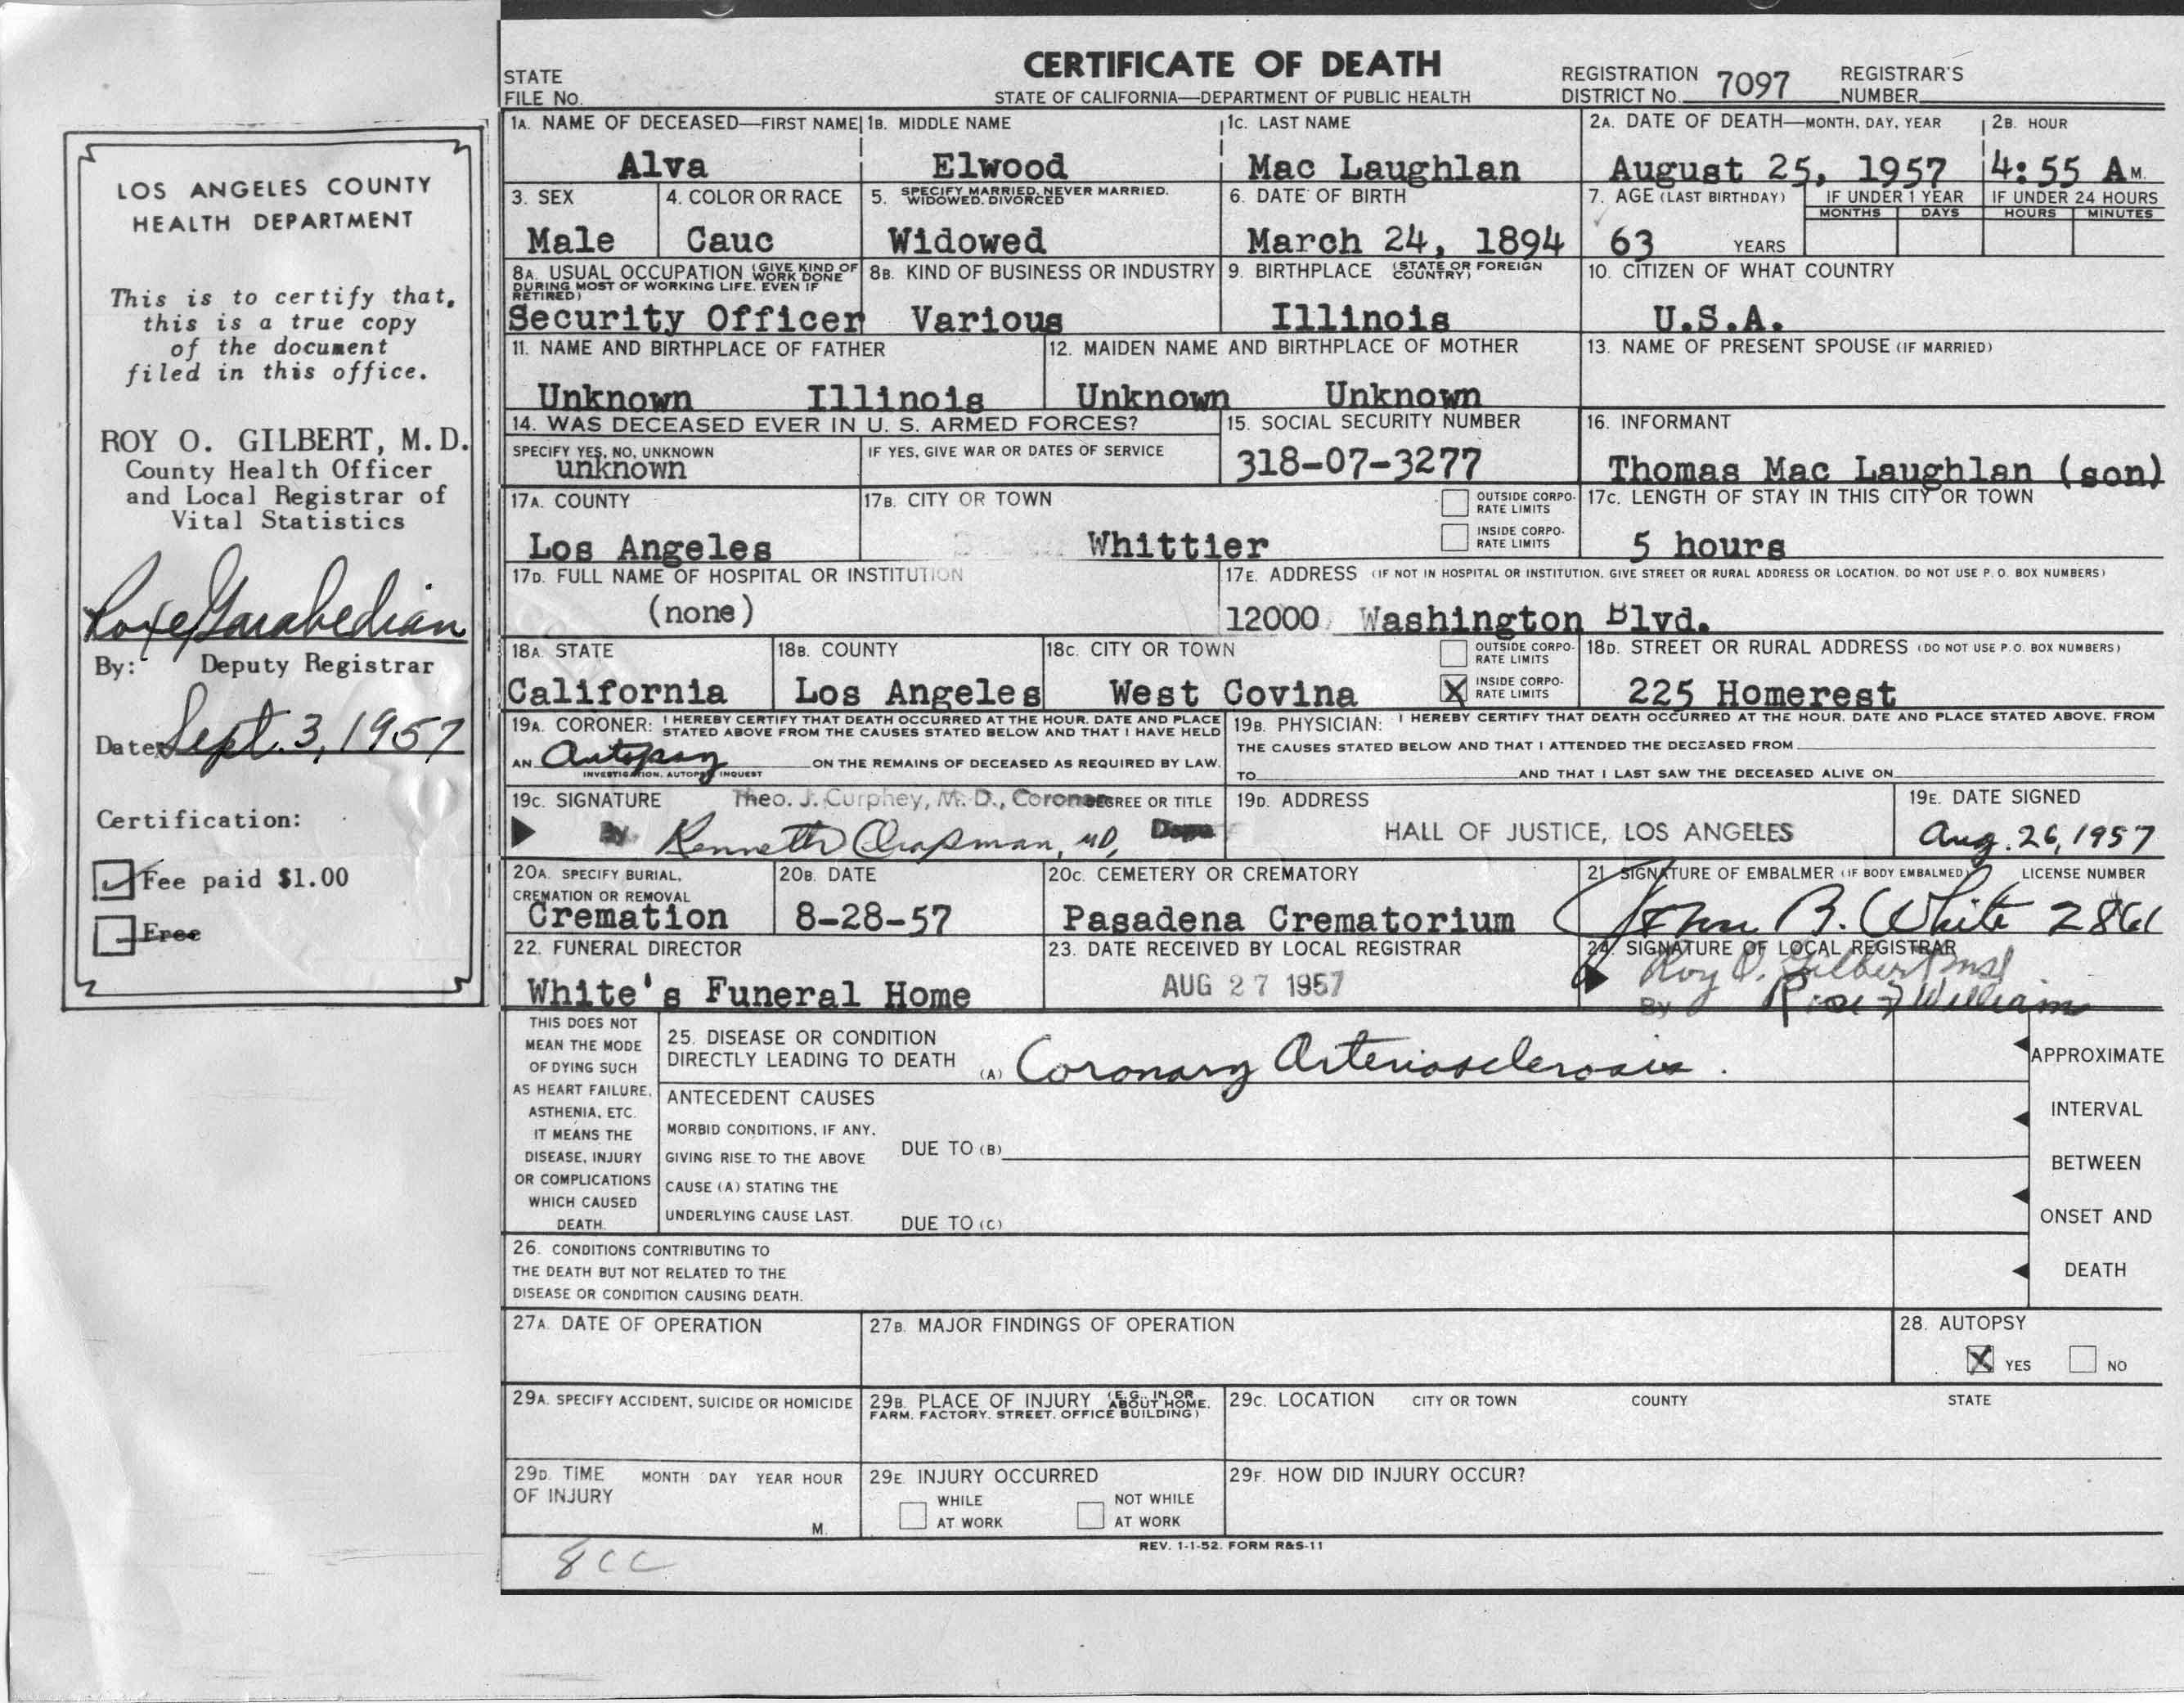 LOS ANGELES COUNTY
HEALTH DEPARTMENT
This is to certify that,
this is a true copy
of the document
filed in this office.
ROY O. GILBERT, M.D.
County Health Officer
and Local Registrar of
Vital Statistics
Roxe Garabedian
By: Deputy Registrar
Date Sept. 3, 1957
Certification:
Fee paid $1.00
Free
CERTIFICATE OF DEATH
STATE OF CALIFORNIA—DEPARTMENT OF PUBLIC HEALTH
STATE
FILE No.
REGISTRATION
DISTRICT No. 7097
REGISTRAR'S
NUMBER
1A. NAME OF DECEASED—FIRST NAME
Alva
1B. MIDDLE NAME
Elwood
1C. LAST NAME
Mac Laughlan
2A. DATE OF DEATH—MONTH, DAY, YEAR
August 25, 1957
2B. HOUR
4:55 A M.
3. SEX
Male
4. COLOR OR RACE
Cauc
5. SPECIFY MARRIED, NEVER MARRIED,
WIDOWED, DIVORCED
Widowed
6. DATE OF BIRTH
March 24, 1894
7. AGE (LAST BIRTHDAY)
63 YEARS
IF UNDER 1 YEAR
MONTHS DAYS
IF UNDER 24 HOURS
HOURS MINUTES
8A. USUAL OCCUPATION (GIVE KIND OF WORK DONE
DURING MOST OF WORKING LIFE, EVEN IF
RETIRED)
Security Officer
8B. KIND OF BUSINESS OR INDUSTRY
Various
9. BIRTHPLACE (STATE OR FOREIGN COUNTRY)
Illinois
10. CITIZEN OF WHAT COUNTRY
U.S.A.
11. NAME AND BIRTHPLACE OF FATHER
Unknown Illinois
12. MAIDEN NAME AND BIRTHPLACE OF MOTHER
Unknown Unknown
13. NAME OF PRESENT SPOUSE (IF MARRIED)
14. WAS DECEASED EVER IN U. S. ARMED FORCES?
SPECIFY YES, NO, UNKNOWN
unknown
IF YES, GIVE WAR OR DATES OF SERVICE
15. SOCIAL SECURITY NUMBER
318-07-3277
16. INFORMANT
Thomas Mac Laughlan (son)
17A. COUNTY
Los Angeles
17B. CITY OR TOWN
Whittier
OUTSIDE CORPO-
RATE LIMITS
INSIDE CORPO-
RATE LIMITS
17C. LENGTH OF STAY IN THIS CITY OR TOWN
5 hours
17D. FULL NAME OF HOSPITAL OR INSTITUTION
(none)
17E. ADDRESS (IF NOT IN HOSPITAL OR INSTITUTION, GIVE STREET OR RURAL ADDRESS OR LOCATION. DO NOT USE P. O. BOX NUMBERS)
12000 Washington Blvd.
18A. STATE
California
18B. COUNTY
Los Angeles
18C. CITY OR TOWN
West Covina
OUTSIDE CORPO-
RATE LIMITS
X INSIDE CORPO-
RATE LIMITS
18D. STREET OR RURAL ADDRESS (DO NOT USE P.O. BOX NUMBERS)
225 Homerest
19A. CORONER: I HEREBY CERTIFY THAT DEATH OCCURRED AT THE HOUR, DATE AND PLACE
STATED ABOVE FROM THE CAUSES STATED BELOW AND THAT I HAVE HELD
AN Autopsy ON THE REMAINS OF DECEASED AS REQUIRED BY LAW.
INVESTIGATION, AUTOPSY, INQUEST
19B. PHYSICIAN: I HEREBY CERTIFY THAT DEATH OCCURRED AT THE HOUR, DATE AND PLACE STATED ABOVE, FROM
THE CAUSES STATED BELOW AND THAT I ATTENDED THE DECEASED FROM
TO AND THAT I LAST SAW THE DECEASED ALIVE ON
19C. SIGNATURE Theo. J. Curphey, M. D., Coroner DEGREE OR TITLE
By Kenneth Chapman, MD,
19D. ADDRESS
HALL OF JUSTICE, LOS ANGELES
19E. DATE SIGNED
Aug. 26, 1957
20A. SPECIFY BURIAL,
CREMATION OR REMOVAL
Cremation
20B. DATE
8-28-57
20C. CEMETERY OR CREMATORY
Pasadena Crematorium
21. SIGNATURE OF EMBALMER (IF BODY EMBALMED) LICENSE NUMBER
John B. White 2861
22. FUNERAL DIRECTOR
White's Funeral Home
23. DATE RECEIVED BY LOCAL REGISTRAR
AUG 27 1957
24. SIGNATURE OF LOCAL REGISTRAR
Roy O. Gilbert md
By
THIS DOES NOT
MEAN THE MODE
OF DYING SUCH
AS HEART FAILURE,
ASTHENIA, ETC.
IT MEANS THE
DISEASE, INJURY
OR COMPLICATIONS
WHICH CAUSED
DEATH.
25. DISEASE OR CONDITION
DIRECTLY LEADING TO DEATH (A) Coronary Arteriosclerosis.
ANTECEDENT CAUSES
MORBID CONDITIONS, IF ANY,
GIVING RISE TO THE ABOVE
CAUSE (A) STATING THE
UNDERLYING CAUSE LAST.
DUE TO (B)
DUE TO (C)
APPROXIMATE
INTERVAL
BETWEEN
ONSET AND
DEATH
26. CONDITIONS CONTRIBUTING TO
THE DEATH BUT NOT RELATED TO THE
DISEASE OR CONDITION CAUSING DEATH.
27A. DATE OF OPERATION
27B. MAJOR FINDINGS OF OPERATION
28. AUTOPSY
X YES NO
29A. SPECIFY ACCIDENT, SUICIDE OR HOMICIDE
29B. PLACE OF INJURY (E.G., IN OR ABOUT HOME,
FARM, FACTORY, STREET, OFFICE BUILDING)
29C. LOCATION CITY OR TOWN COUNTY STATE
29D. TIME MONTH DAY YEAR HOUR
OF INJURY
M.
29E. INJURY OCCURRED
WHILE
AT WORK
NOT WHILE
AT WORK
29F. HOW DID INJURY OCCUR?
REV. 1-1-52. FORM R&S-11
8cc